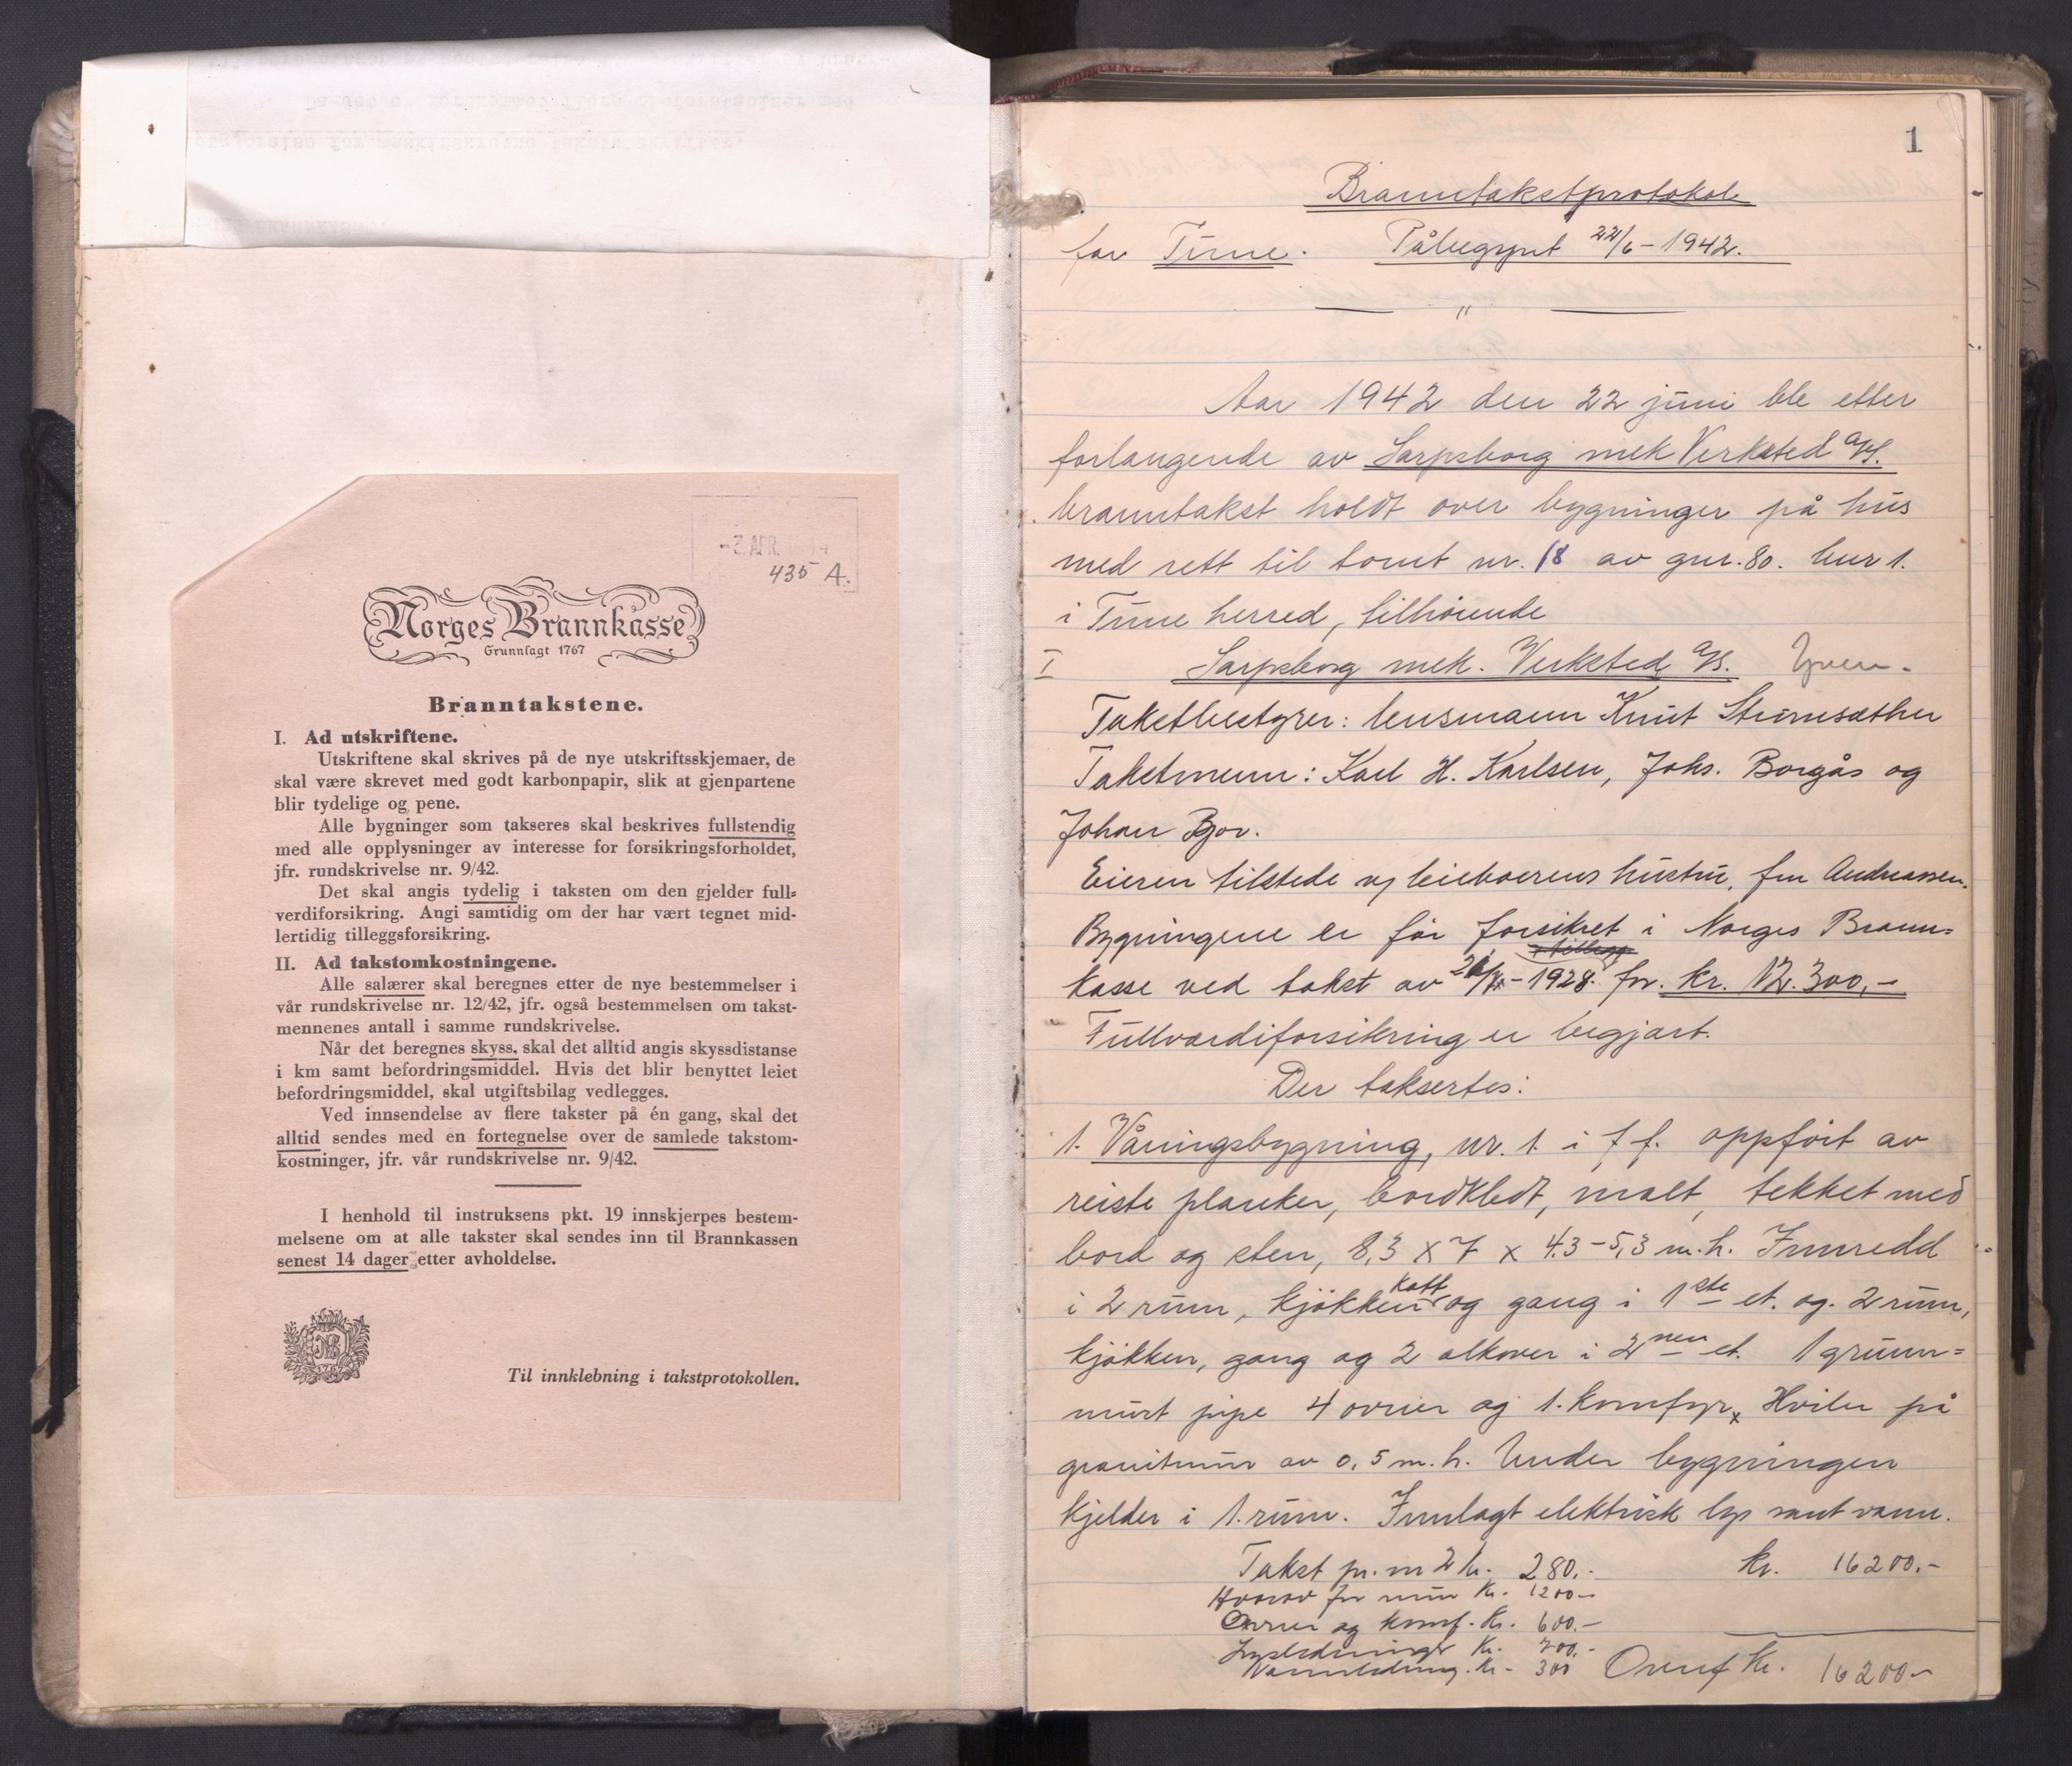 -3 APR.
435 A.
Norges Brannkasse
Grunnlagt 1767
Branntakstene.
I. Ad utskriftene.
Utskriftene skal skrives på de nye utskriftsskjemaer, de
skal være skrevet med godt karbonpapir, slik at gjenpartene
blir tydelige og pene.
Alle bygninger som takseres skal beskrives fullstendig
med alle opplysninger av interesse for forsikringsforholdet,
jfr. rundskrivelse nr. 9/42.
Det skal angis tydelig i taksten om den gjelder full-
verdiforsikring. Angi samtidig om der har vært tegnet mid-
lertidig tilleggsforsikring.
II. Ad takstomkostningene.
Alle salærer skal beregnes etter de nye bestemmelser i
vår rundskrivelse nr. 12/42, jfr. også bestemmelsen om takst-
mennenes antall i samme rundskrivelse.
Når det beregnes skyss, skal det alltid angis skyssdistanse
i km samt befordringsmiddel. Hvis det blir benyttet leiet
befordringsmiddel, skal utgiftsbilag vedlegges.
Ved innsendelse av flere takster på én gang, skal det
alltid sendes med en fortegnelse over de samlede takstom-
kostninger, jfr. vår rundskrivelse nr. 9/42.
I henhold til instruksens pkt. 19 innskjerpes bestem-
melsene om at alle takster skal sendes inn til Brannkassen
senest 14 dager etter avholdelse.
Til innklebning i takstprotokollen.
1
Branntakstprotokol
for Tune. Påbegynt 22/6-1942.
Aar 1942 den 22 juni ble etter
forlangende av Sarpsborg mek Verksted A/S.
branntakst holdt over bygninger på hus
med rett til tomt nr. 18 av gnr. 80. bnr 1.
i Tune herred, tilhörende
I Sarpsborg mek. Verksted A/S.
Takstbestyrer: lensmann Knut Strømsæther
Takstmenn: Karl H. Karlsen, Johs. Borgås og
Johan Bjor.
Eieren tilstede og leieboerens hustru, fru Andreassen.
Bygningene er för forsikret i Norges Brann-
kasse ved takst av -1928. for kr. 12.300,-
Fullverdiforsikring er begjært.
Der taksertes:
1. Våningsbygning, nr. 1. i f f. oppfört av
reiste planker, bordkledt, malt, tekket med
bord og sten, 8,3 x 7 x 4.3-5,3 m.h. Innredd
i 2 rum, kjökken kott og gang i 1ste et. og. 2 rum,
kjökken, gang og 2 alkover i 2nen et. 1 grunn-
murt pipe 4 ovner og 1. komfyr, Hviler på
granitmur av 0,5 m.h. Under bygningen
kjelder i 1. rum. Innlagt elektrisk lys samt vann.
Takst pr. m2 kr. 280.- kr. 16200.-
Hvorav for mur Kr. 1200-
Ovner og komf. Kr. 600.-
Lysledninger Kr. 700.-
Vannledning. Kr- 300 Overf Kr. 16200-